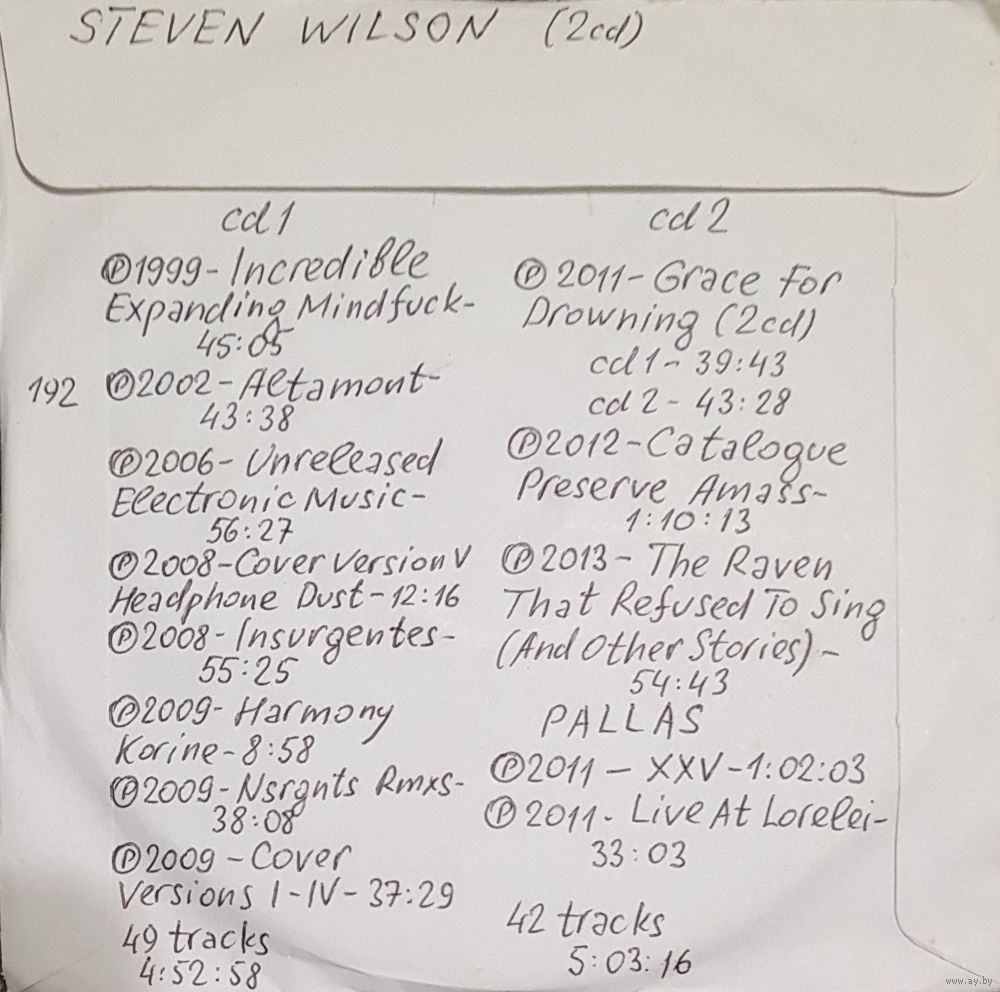 STEVEN WILSON (2cd)
cd 1
℗1999-Incredible
Expanding Mindfuck-
45:05
192 ℗2002-Altamont-
43:38
℗2006-Unreleased
Electronic Music-
56:27
℗2008-Cover Version V
Headphone Dust-12:16
℗2008-Insurgentes-
55:25
℗2009-Harmony
Korine-8:58
℗2009-Nsrgnts Rmxs-
38:08
℗2009-Cover
Versions I-IV-37:29
49 tracks
4:52:58
cd 2
℗2011-Grace For
Drowning (2cd)
cd 1-39:43
cd 2-43:28
℗2012-Catalogue
Preserve Amass-
1:10:13
℗2013-The Raven
That Refused To Sing
(And Other Stories)-
54:43
PALLAS
℗2011-XXV-1:02:03
℗2011-Live At Lorelei-
33:03
42 tracks
5:03:16
www.ay.by